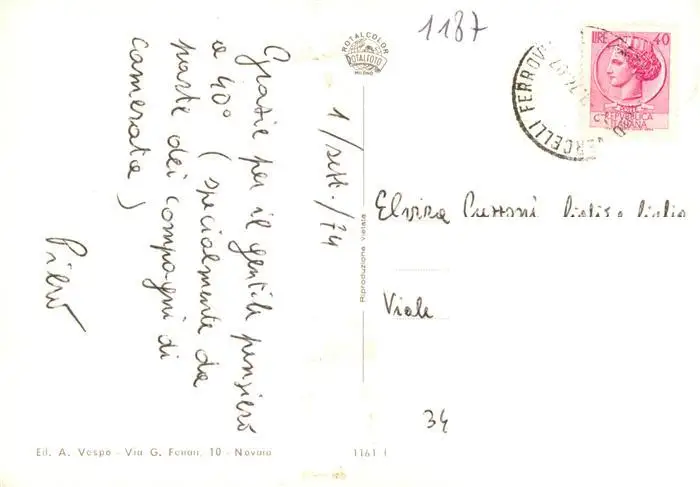 1187
ROTALCOLOR
ROTALFOTO
MILANO
LIRE 40
REPUBBLICA
ITALIANA
VERCELLI FERROVIA
1/sett./74
Grazie per il gentile pensiero
a 40° (specialmente da
parte dei compagni di
camerata)
Piero
Elvira
Viale
34
Riproduzione vietata
Ed. A. Vespa - Via G. Ferrari, 10 - Novara
1161